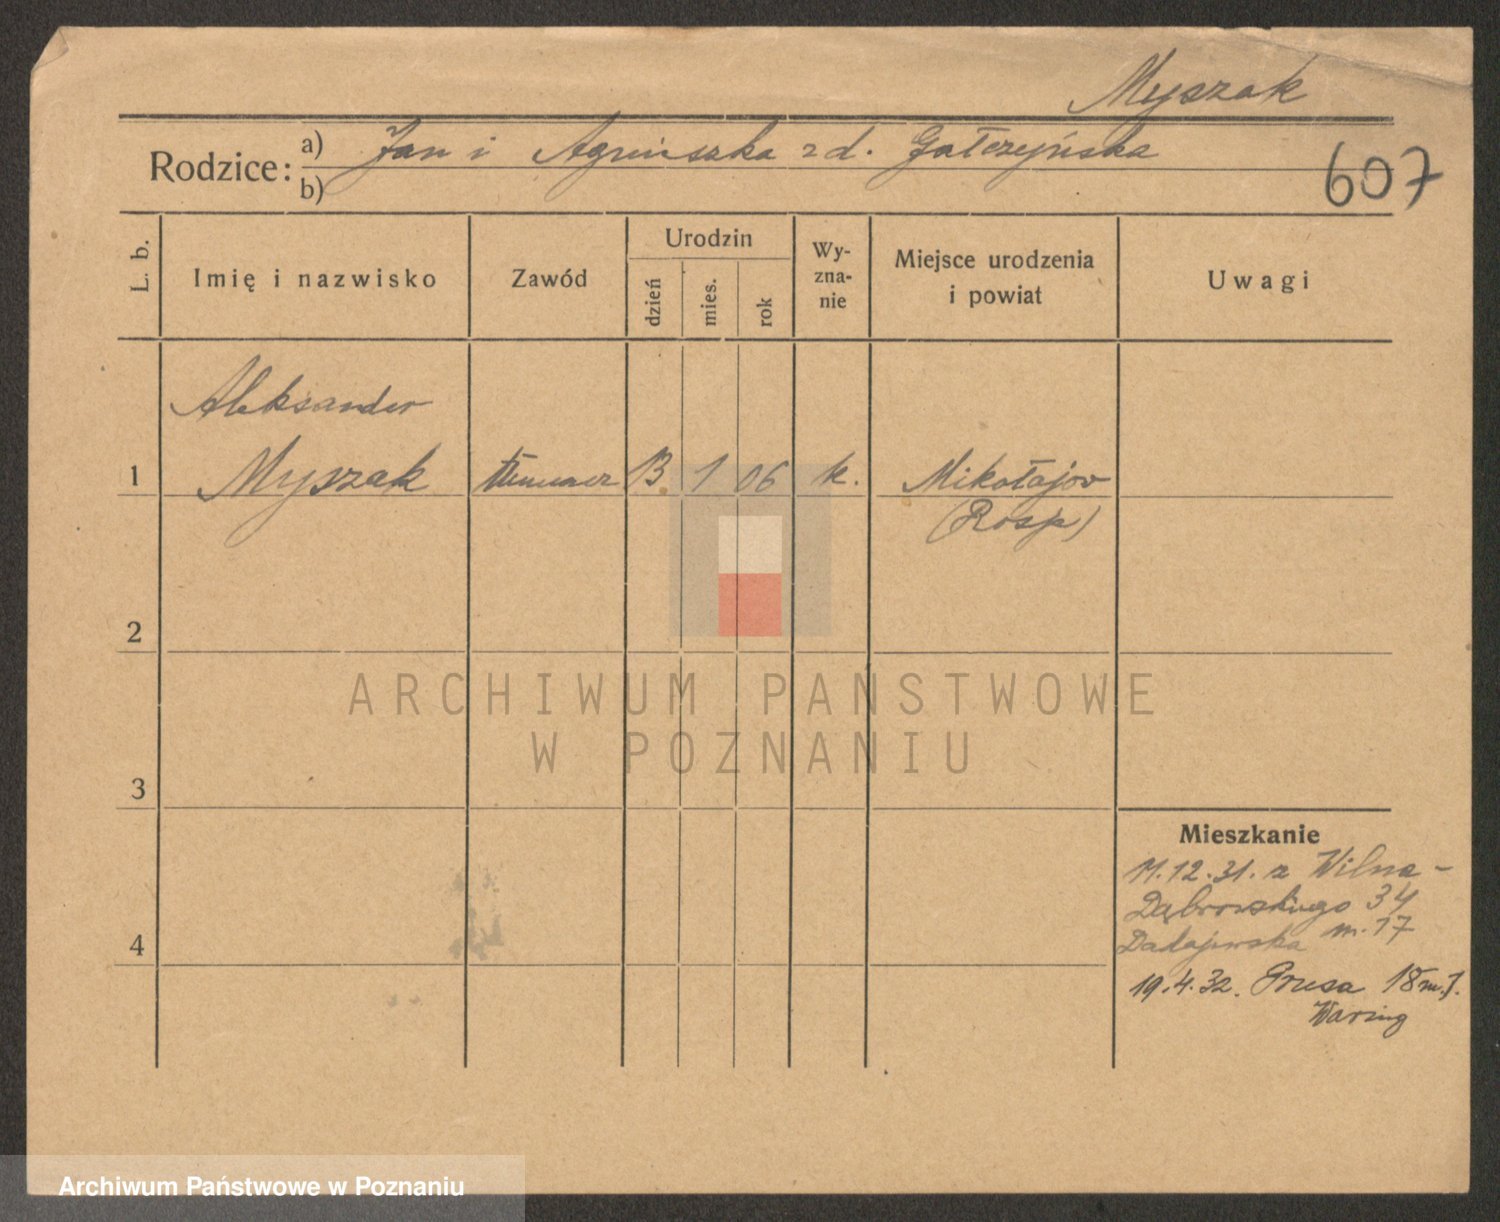 Myszak
Rodzice: a) Jan i Agnieszka z d. Gałczyńska
b)
607
L. b.
Imię i nazwisko
Zawód
Urodzin
dzień
mies.
rok
Wy-
zna-
nie
Miejsce urodzenia
i powiat
Uwagi
Aleksander
1 Myszak 13 1 06 k. Mikołajow
(Rosja)
2
3
4
ARCHIWUM PAŃSTWOWE
W POZNANIU
Mieszkanie
11.12.31. z Wilna -
Dąbrowskiego 34
m. 17
19.4.32. Prusa 18 m.
Archiwum Państwowe w Poznaniu